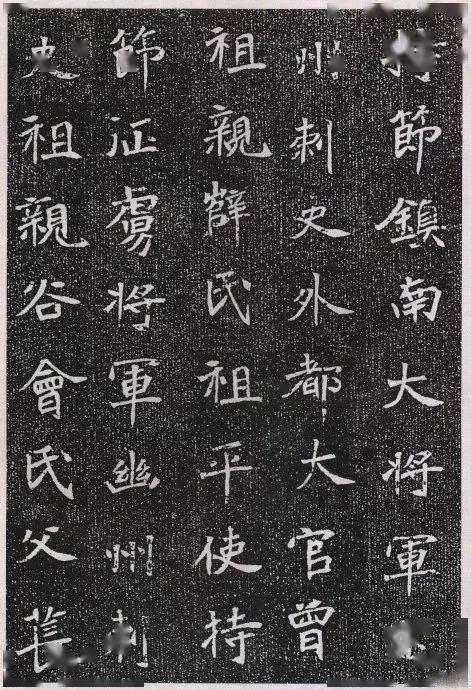 持節鎮南大將軍
州刺史外都大官曾
祖親薛氏祖平使持
節征虜將軍幽州刺
史祖親谷會氏父萇